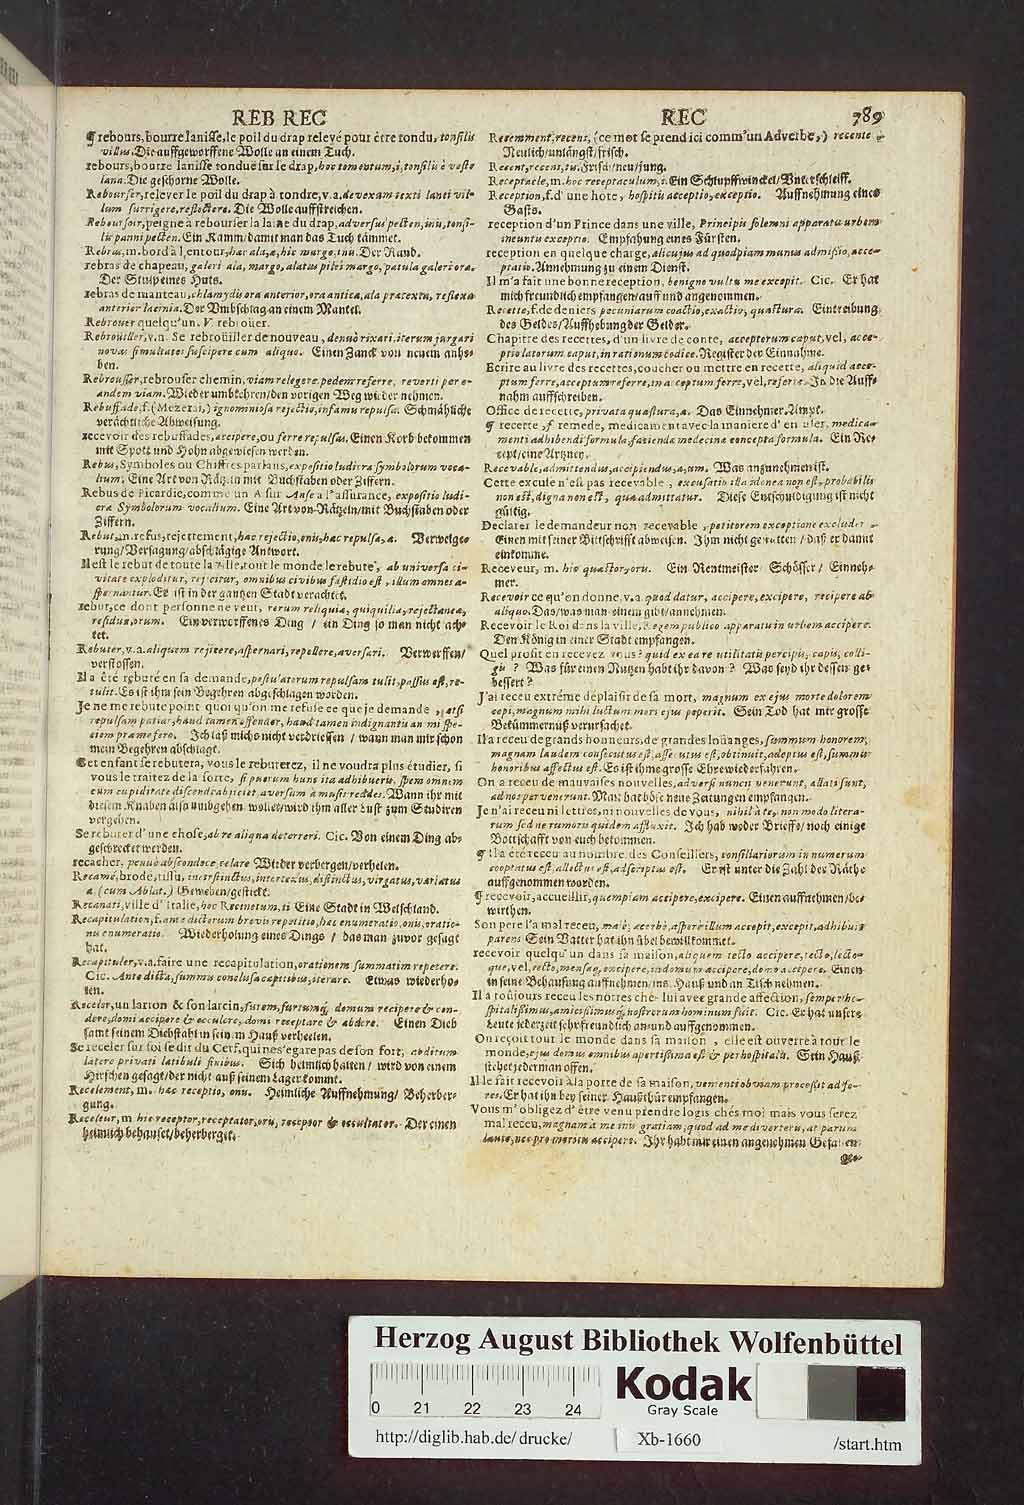 REB REC
¶ rebours, bourre lanisse, le poil du drap relevé pour être tondu, tonsilis
villus. Die auffgeworffene Wolle an einem Tuch.
rebours, bourre lanisse tondue sur le drap, hoc tomentum, i, tonsilis è veste
lana. Die geschorne Wolle.
Rebourser, relever le poil du drap à tondre, v.a. devexam texti lanei vil-
lum surrigere, reflectere. Die Wolle auffstreichen.
Reboursoir, peigne à rebourser la laine du drap, adversus pecten, inis, tonsi-
lis panni pecten. Ein Kamm/ damit man das Tuch kämmet.
Rebras, m. bord à l'entour, hæc ala, æ, hic margo, inis. Der Rand.
rebras de chapeau, galeri ala, margo, alatus pilei margo, patula galeri ora.
Der Stulp eines Huts.
rebras de manteau, chlamydis ora anterior, ora antica, ala prætexta, reflexa
anterior lacinia. Der Umbschlag an einem Mantel.
Rebrouer quelqu'un. V. rebrouer.
Rebrouiller, v.n. Se rebroüiller de nouveau, denuò rixari, iterum jurgari
novas simultates suscipere cum aliquo. Einen Zanck von neuem anhe-
ben.
Rebrousser, rebrousser chemin, viam relegere, pedem referre, reverti per e-
andem viam. Wieder umbkehren/ den vorigen Weg wieder nehmen.
Rebuffade, f. (Mezerai,) ignominiosa rejectio, infamis repulsa. Schmähliche
verächtliche Abweisung.
recevoir des rebuffades, accipere, ou ferre repulsas. Einen Korb bekommen
mit Spott und Hohn abgewiesen werden.
Rebus, Symboles ou Chiffres parlans, expositio ludicra symbolorum voca-
lium. Eine Art von Rätzeln mit Buchstaben oder Ziffern.
Rebus de Picardie, comme un A sur Anse a l'assurance, expositio ludi-
cra Symbolorum vocalium. Eine Art von Rätzeln/ mit Buchstaben oder
Ziffern.
Rebut, m. refus, rejettement, hæc rejectio, onis, hæc repulsa, æ. Verweige-
rung/ Versagung/ abschlägige Antwort.
Il est le rebut de toute la ville, tout le monde le rebute, ab universa ci-
vitate exploditur, rejicitur, omnibus civibus fastidio est, illum omnes a-
spernantur. Er ist in der gantzen Stadt verachtet.
rebut, ce dont personne ne veut, rerum reliquiæ, quiquiliæ, rejectanea,
residua, orum. Ein verworffenes Ding / ein Ding so man nicht ach-
tet.
Rebuter, v.a. aliquem rejicere, aspernari, repellere, aversari. Verwerffen/
verstossen.
Il a été rebuté en sa demande, postulatorum repulsam tulit, passus est, re-
tulit. Es ist ihm sein Begehren abgeschlagen worden.
Je ne me rebute point quoi qu'on me refuse ce que je demande, etsi
repulsam patiar, haud tamen offendor, haud tamen indignantis animi spe-
ciem præ me fero. Ich laß michs nicht verdriessen / wann man mir schon
mein Begehren abschlagt.
Cet enfant se rebutera, vous le rebuterez, il ne voudra plus étudier, si
vous le traitez de la sorte, si puerum hunc ita adhibueris, spem omnem
cum cupiditate discendi abjiciet, aversum à musis reddes. Wann ihr mit
diesem Knaben also umbgehen wollet/ wird ihm aller Lust zum Studiren
vergehen.
Se rebuter d'une chose, ab re aliqua deterreri. Cic. Von einem Ding ab-
geschrecket werden.
recacher, penuò abscondere, celare Wieder verbergen/verhelen.
Recamé, brodé, tissu, incrustinctus, intertextus, distinctus, virgatus, variatus
a. (cum Ablat.) Geweben/gestickt.
Recanati, ville d'Italie, hoc Recinetum, ti Eine Stadt in Welschland.
Recapitulation, f. ante dictorum brevis repetitio, hæc enumeratio, onis, oratio-
nis enumeratio. Wiederholung eines Dings / das man zuvor gesagt
hat.
Recapituler, v.a. faire une recapitulation, orationem summatim repetere.
Cic. Ante dicta, summa conclusa capitibus, iterare. Etwas wiederho-
len.
Receler, un larron & son larcin, furem, furtumq́; domum recipere & con-
dere, domi accipere & occulere, domi receptare & abdere. Einen Dieb
samt seinem Diebstahl in seinem Hauß verheelen.
Se receler sur soi se dit du Cerf, qui ne s'egare pas de son fort, abditum
latere privati latibuli finibus. Sich heimlich halten / wird von einem
Hirschen gesagt/ der nicht auß seinem Lager kommt.
Recelement, m. hæc receptio, onis. Heimliche Auffnehmung/ Beherber-
gung.
Receleur, m. hic receptor, receptator, oris, receptor & occultator. Der einen
heimlich behauset/beherberget.
REC 789
Recemment, recent, (ce mot se prend ici comm'un Adverbe,) recente
Neulich/unlängst/frisch.
Recent, recens, tis. Frisch/neu/jung.
Receptacle, m. hoc receptaculum, i. Ein Schlupffwinckel/ Unterschleiff.
Reception, f. d'une hote, hospitii acceptio, exceptio. Auffnehmung eines
Gasts.
reception d'un Prince dans une ville, Principis solemni apparatu urbem
ineuntis exceptio. Empfahung eines Fürsten.
reception en quelque charge, alicujus ad quodpiam munus admissio, acce-
ptatio. Annehmung zu einem Dienst.
Il m'a fait une bonne reception, benigno vultu me excepit. Cic. Er hat
mich freundlich empfangen/ auff und angenommen.
Recette, f. de deniers pecuniarum coactio, exactio, quæstura. Eintreibung
des Geldes/ Auffhebung der Gelder.
Chapitre des recettes, d'un livre de conte, acceptorum caput, vel, acce-
ptilatorum caput, in rationum codice. Register der Einnahme.
Ecrire au livre des recettes, coucher ou mettre en recette, aliquid acce-
ptum ferre, acceptum referre, in acceptum ferre, vel, referre. In die Auff-
nahm auffschreiben.
Office de recette, privata quæstura, æ. Das Einnehmer-Ampt.
¶ recette, f. remede, medicament avec la maniere d'en user, medica-
menti adhibendi formula, facienda medecina concepta formula. Ein Re-
cept/eine Artzney.
Recevable, admittendus, accipiendus, a, um. Was anzunehmen ist.
Cette excuse n'est pas recevable, excusatio illa idonea non est, probabilis
non est, digna non est, quæ admittatur. Diese Entschuldigung ist nicht
gültig.
Declarer le demandeur non recevable, petitorem exceptione excludere
Einen mit seiner Bittschrifft abweisen. Ihm nicht gestatten / daß er damit
einkomme.
Receveur, m. hic quæstor, oris. Ein Rentmeister / Schösser / Einneh-
mer.
Recevoir ce qu'on donne, v.a. quod datur, accipere, excipere, recipere ab
aliquo. Das/ was man einem gibt/annehmen.
Recevoir le Roi dans la ville, Regem publico apparatu in urbem accipere.
Den König in einer Stadt empfangen.
Quel profit en recevez vous? quid ex ea re utilitatis percipis, capis, colli-
gis? Was für einen Nutzen habt ihr davon? Was seyd ihr dessen ge-
bessert?
J'ai receu extréme deplaisir de sa mort, magnum ex ejus morte dolorem
cepi, magnum mihi luctum mors ejus peperit. Sein Tod hat mir grosse
Bekümmernüß verursachet.
Il a receu de grands honneurs, de grandes loüanges, summum honorem,
magnam laudem consecutus est, assecutus est, obtinuit, adeptus est, summis
honoribus affectus est. Es ist ihm grosse Ehre wiederfahren.
On a receu de mauvaises nouvelles, adversi nuncii venerunt, allati sunt,
ad nos pervenerunt. Man hat böse neue Zeitungen empfangen.
Je n'ai receu ni lettres, ni nouvelles de vous, nihil à te, non modo litera-
rum sed ne rumoris quidem affluxit. Ich hab weder Brieffe/ noch einige
Bottschafft von euch bekommen.
¶ Il a été receu au nombre des Conseillers, consiliariorum in numerum
cooptatus est, allectus est, adscriptus est. Er ist unter die Zahl der Räthe
auffgenommen worden.
¶ recevoir, accueillir, quempiam accipere, excipere. Einen auffnehmen/be-
wirthen.
Son pere l'a mal receu, malè, acerbè, asperè illum accepit, excepit, adhibuit
parens Sein Vatter hat ihn übel bewillkommet.
recevoir quelqu'un dans sa maison, aliquem tecto accipere, tecto, lecto-
que, vel, tecto, mensaq́; excipere, in domum accipere, domo accipere. Einen
in seine Behausung auffnehmen/ins Hauß und an Tisch nehmen.
Il a toujours receu les nottres chés lui avec grande affection, semper ho-
spitalissimus, amicissimusq́; nostrorum hominum fuit. Cic. Er hat unsere
Leute jederzeit sehr freundlich an und auffgenommen.
On reçoit tout le monde dans sa maison, elle est ouverte à tout le
monde, ejus domus omnibus apertissima est & perhospitalis. Sein Hauß
stehet jederman offen.
Il le fait recevoir à la porte de sa maison, venienti obviam processit ad fo-
res. Er hat ihn bey seiner Haußthür empfangen.
Vous m'obligez d'être venu prendre logis chés moi mais vous serez
mal receu, magnam à me inis gratiam, quod ad me diverteris, at parum
lautè, nec pro meritis accipere. Ihr habt mir einen angenehmen Gefallen
Herzog August Bibliothek Wolfenbüttel
0 21 22 23 24
Kodak
Gray Scale
http://diglib.hab.de/drucke/ Xb-1660 /start.htm